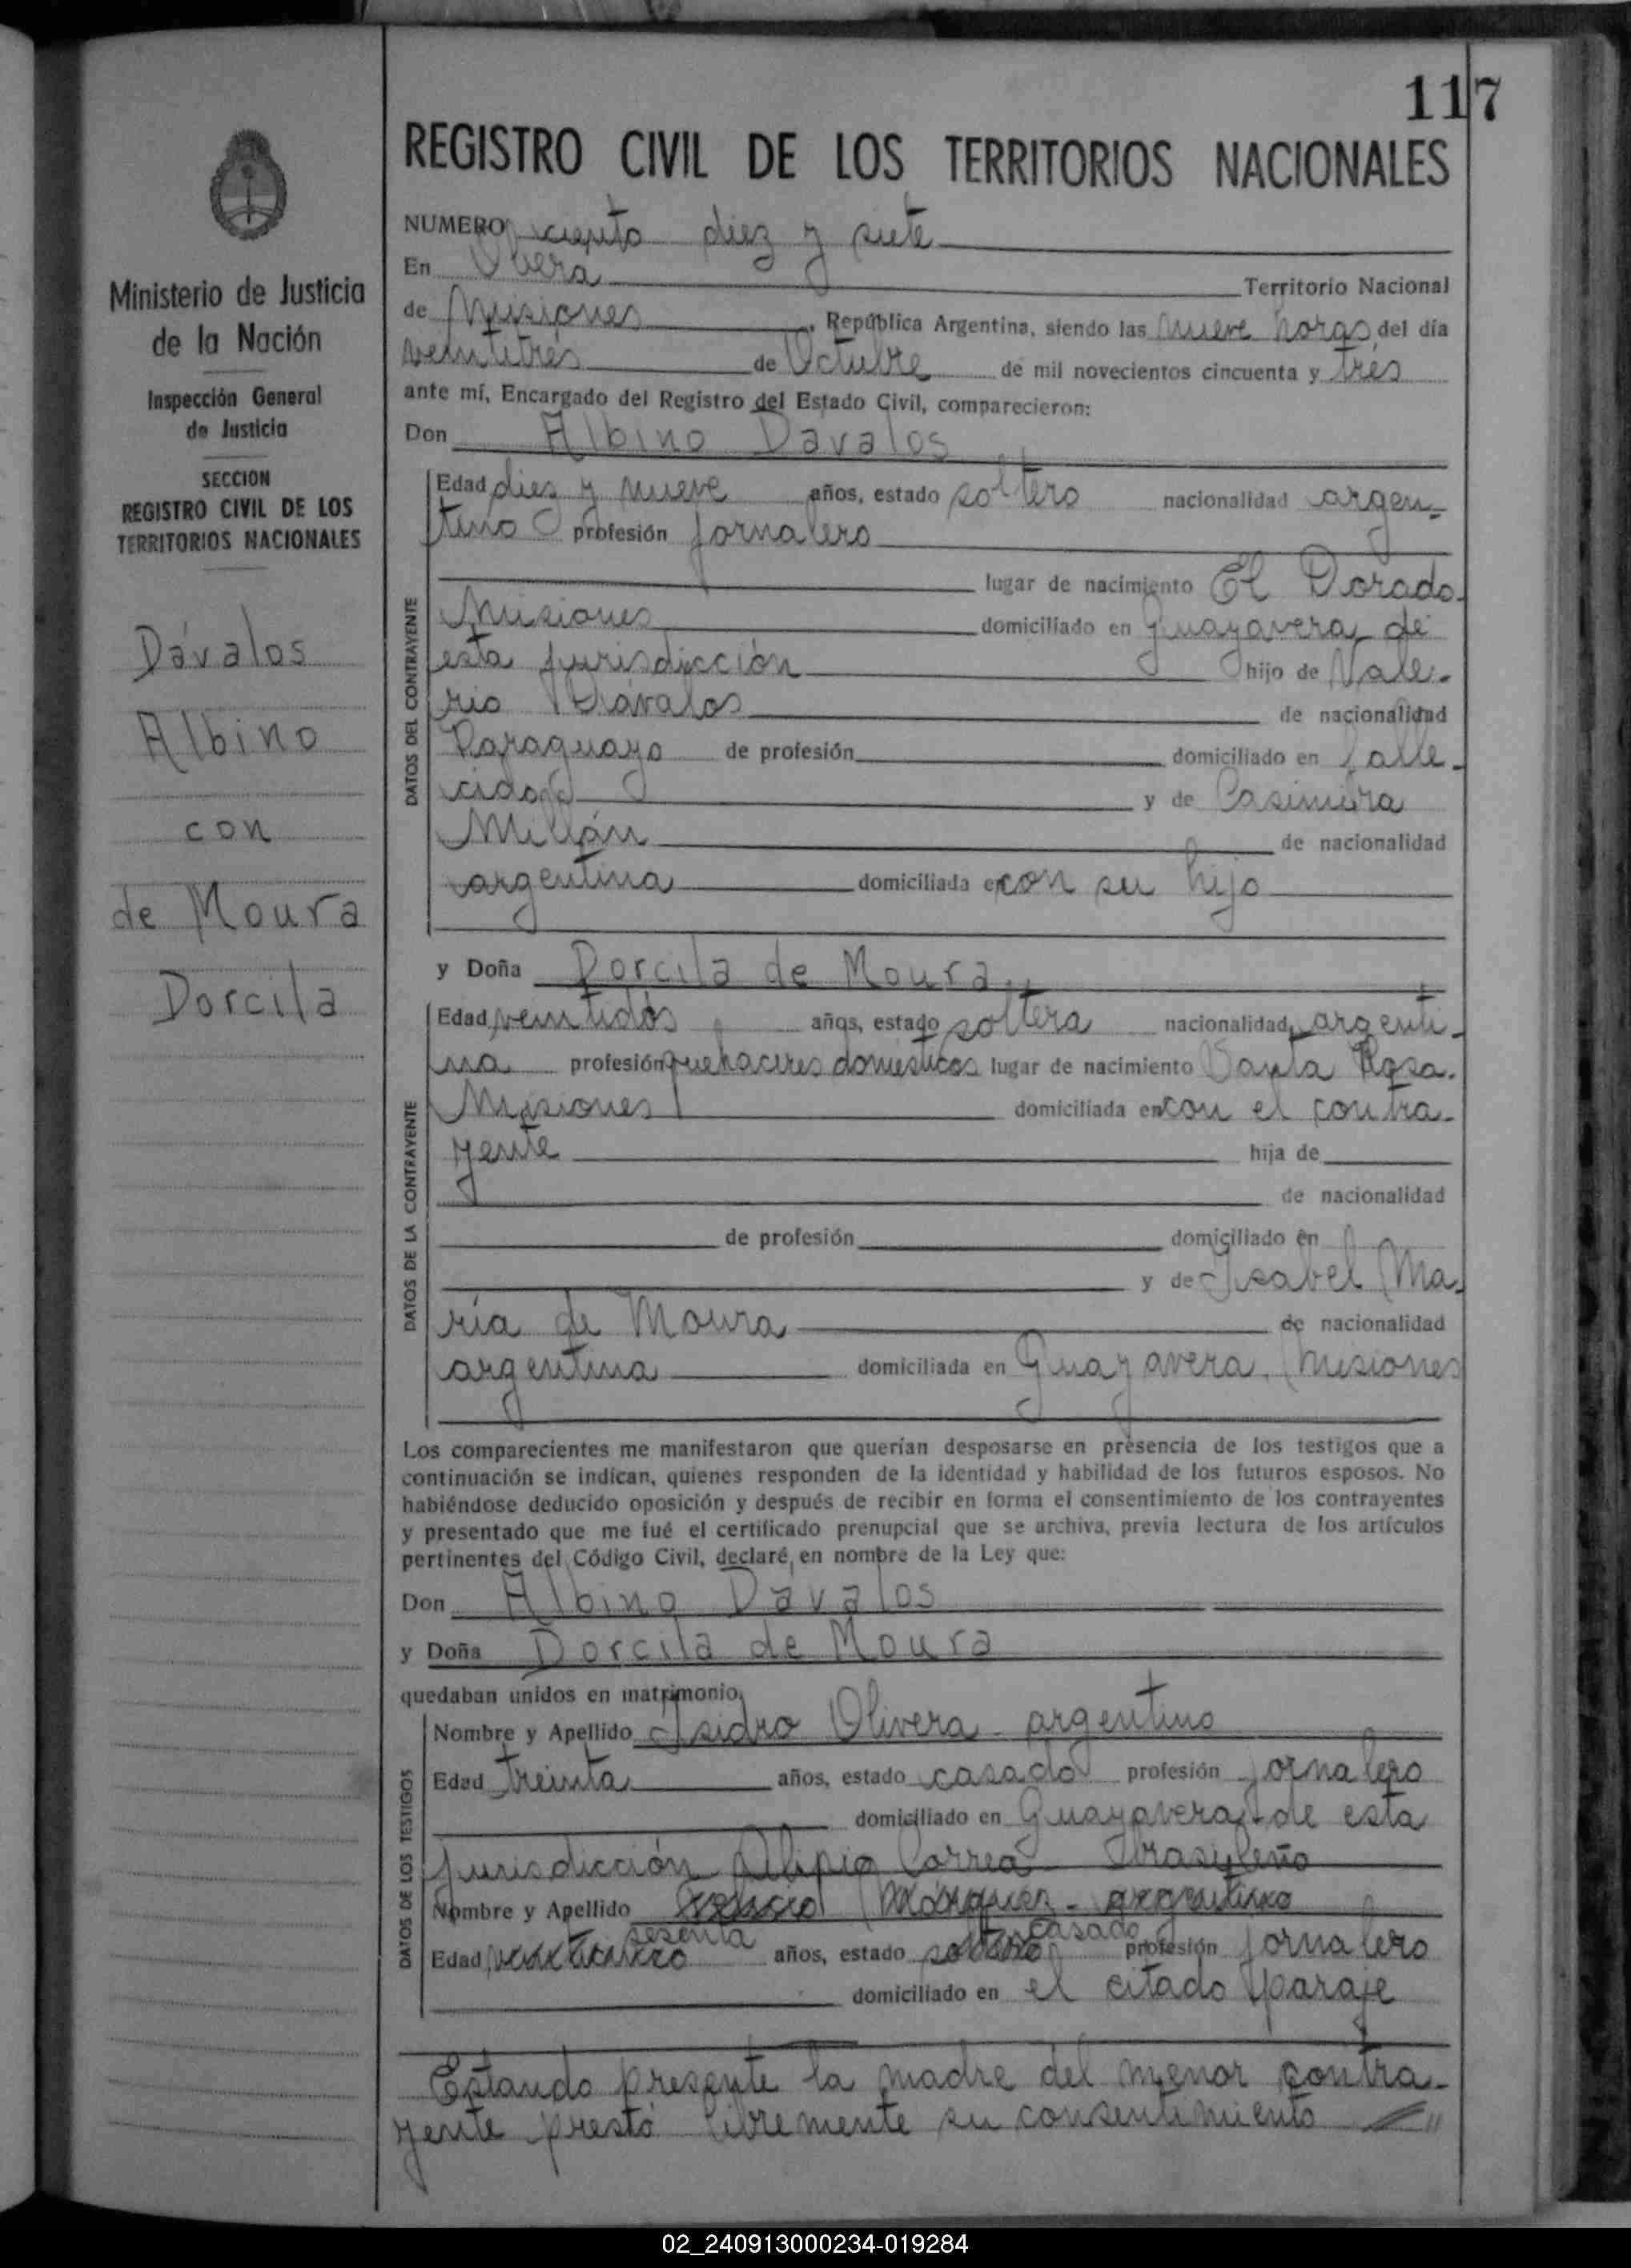 117
REGISTRO CIVIL DE LOS TERRITORIOS NACIONALES
Ministerio de Justicia
de la Nación
Inspección General
de Justicia
SECCION
REGISTRO CIVIL DE LOS
TERRITORIOS NACIONALES
Dávalos
Albino
con
de Moura
Dorcila
NUMERO ciento diez y siete
En Obera Territorio Nacional
de Misiones, República Argentina, siendo las nueve horas del día
veintitrés de Octubre de mil novecientos cincuenta y trés
ante mí, Encargado del Registro del Estado Civil, comparecieron:
Don Albino Davalos
DATOS DEL CONTRAYENTE
Edad diez y nueve años, estado soltero nacionalidad argen-
tino profesión jornalero
lugar de nacimiento El Dorado-
Misiones domiciliado en Guayavera, de
esta jurisdicción hijo de Vale-
rio Dávalos de nacionalidad
Paraguayo de profesión domiciliado en falle-
cido y de Casimira
Millán de nacionalidad
argentina domiciliada en con su hijo
y Doña Dorcila de Moura
DATOS DE LA CONTRAYENTE
Edad veintidós años, estado soltera nacionalidad argenti-
na profesión quehaceres domésticos lugar de nacimiento Santa Rosa-
Misiones domiciliada en con el contra-
yente hija de
de nacionalidad
de profesión domiciliado en
y de Isabel Ma-
ría de Moura de nacionalidad
argentina domiciliada en Guayavera, Misiones
Los comparecientes me manifestaron que querían desposarse en presencia de los testigos que a
continuación se indican, quienes responden de la identidad y habilidad de los futuros esposos. No
habiéndose deducido oposición y después de recibir en forma el consentimiento de los contrayentes
y presentado que me fué el certificado prenupcial que se archiva, previa lectura de los artículos
pertinentes del Código Civil, declaré, en nombre de la Ley que:
Don Albino Davalos
y Doña Dorcila de Moura
quedaban unidos en matrimonio.
DATOS DE LOS TESTIGOS
Nombre y Apellido Isidro Olivera - argentino
Edad treinta años, estado casado profesión jornalero
domiciliado en Guayavera, de esta
jurisdicción Alipio Correa - Brasileño
Nombre y Apellido Márquez - argentino
sesenta casado
Edad años, estado soltero profesión jornalero
domiciliado en el citado paraje
Estando presente la madre del menor contra-
yente prestó libremente su consentimiento
02_240913000234-019284